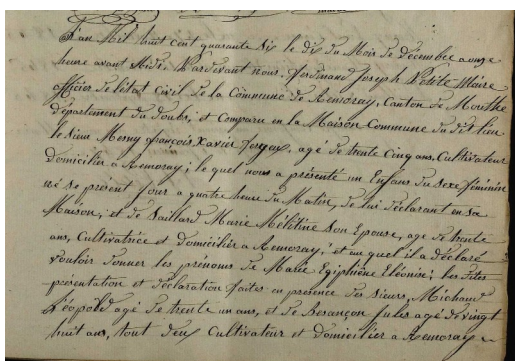 L'an Mil huit cent quarante six le dix du Mois de Décembre a onze
heure avant Midi, Pardevant nous, Ferdinand Joseph Petite Maire
officier de l'état Civil de la Commune de Remoray, Canton de Mouthe
département du Doubs, est Comparu en la Maison Commune du dit lieu
le sieur Mesny françois Xavier, agé de trente Cinq ans, Cultivateur
Domicilier a Remoray; le quel nous a présenté un Enfans du Sexe féminin
né se présent Jour a quatre heure du Matin, de lui déclarant en sa
Maison, et de Vaillard Marie Mélitine Son Epouse, age de trente
ans, Cultivatrice et domicilier a Remoray, et au quel il a déclaré
vouloir donner les prénoms de Marie Egiphène Eléonie; les dites
présentation et déclaration faites en présence des sieurs, Michaud
Léopold agé de trente un ans, et de Besançon Jules agé de vingt
huit ans, tout deux Cultivateur et domicilier a Remoray